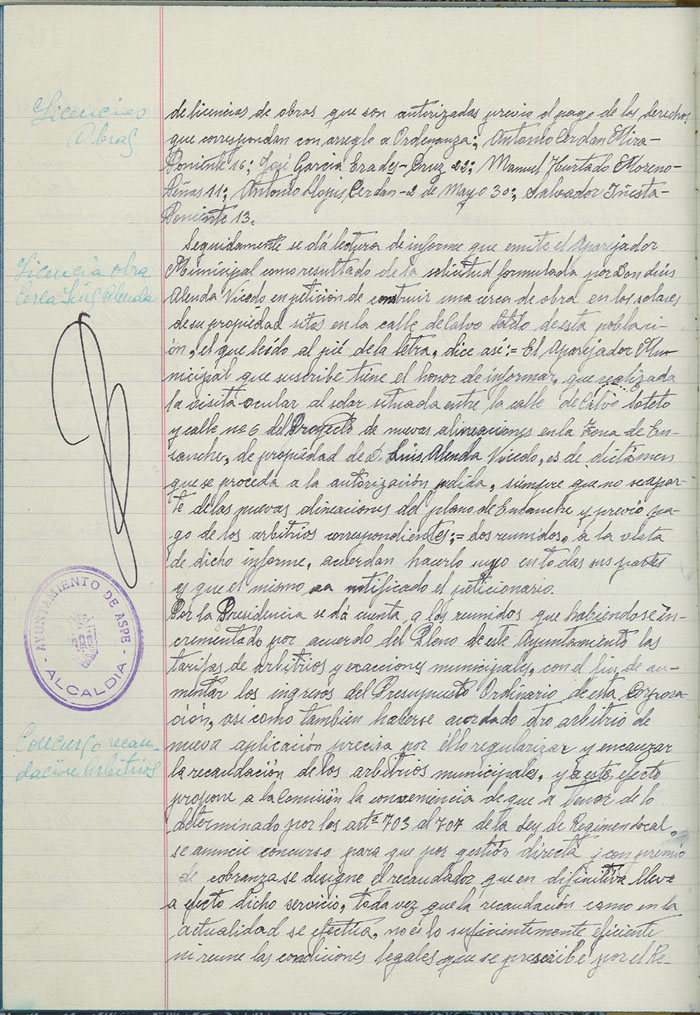 Licencias
Obras
de licencias de obras que son autorizadas previo el pago de los derechos
que correspondan con arreglo a Ordenanza:, Antonio Cerdan Mira-
Poniente 16; José Garcia Erades-Cruz 22; Manuel Hurtado Moreno-
Peñas 11; Antonio Llopis Cerdan-2 de Mayo 30; Salvador Iñesta-
Poniente 13.
Licencia obra
Cerca Luis Alenda
Seguidamente se dá lectura de informe que emite el Aparejador
Municipal como resultado de la solicitud formulada por Don Luis
Alenda Vicedo en petición de construir una cerca de obra en los solares
de su propiedad sitos en la calle de Calvo Sotelo de esta poblaci-
ón, el que leído al pié de la letra, dice así:= El Aparejador Mu-
nicipal que suscribe tiene el honor de informar, que realizada
la visita ocular al solar situada entre la calle de Calvo Sotelo
y calle nº 6 del Proyecto de nuevas alineaciones en la Zona de En-
sanche, de propiedad de D. Luis Alenda Vicedo, es de dictámen
que se proceda a la autorización pedida, siempre que no se apar-
te de las nuevas alineaciones del plano de Ensanche y previo pa-
go de los arbitrios correspondientes;= Los reunidos, a la vista
de dicho informe, acuerdan hacerlo suyo en todas sus partes
y que el mismo sea notificado el peticionario.
AYUNTAMIENTO DE ASPE
ALCALDIA
Por la Presidencia se dá cuenta a los reunidos que habiéndose in-
crementado por acuerdo del Pleno de este Ayuntamiento las
tarifas de arbitrios y exacciones municipales, con el fin de au-
mentar los ingresos del Presupuesto Ordinario de esta Corpora-
ción, asi como tambien haberse acordado otro arbitrio de
nueva aplicación precisa por ello regularizar y encauzar
la recaudación de los arbitrios municipales, y a este efecto
propone a la Comisión la conveniencia de que a tenor de lo
determinado por los artºs 703 al 707 de la Ley de Regimen Local,
se anuncie concurso para que por gestión directa y con premio
de cobranza se designe el recaudador que en difinitiva lleve
a efecto dicho servicio, toda vez que la recaudación como en la
actualidad se efectúa, no es lo suficientemente eficiente
ni reune las condiciones legales que se prescribe por el Re-
Concurso recau-
dación Arbitrios